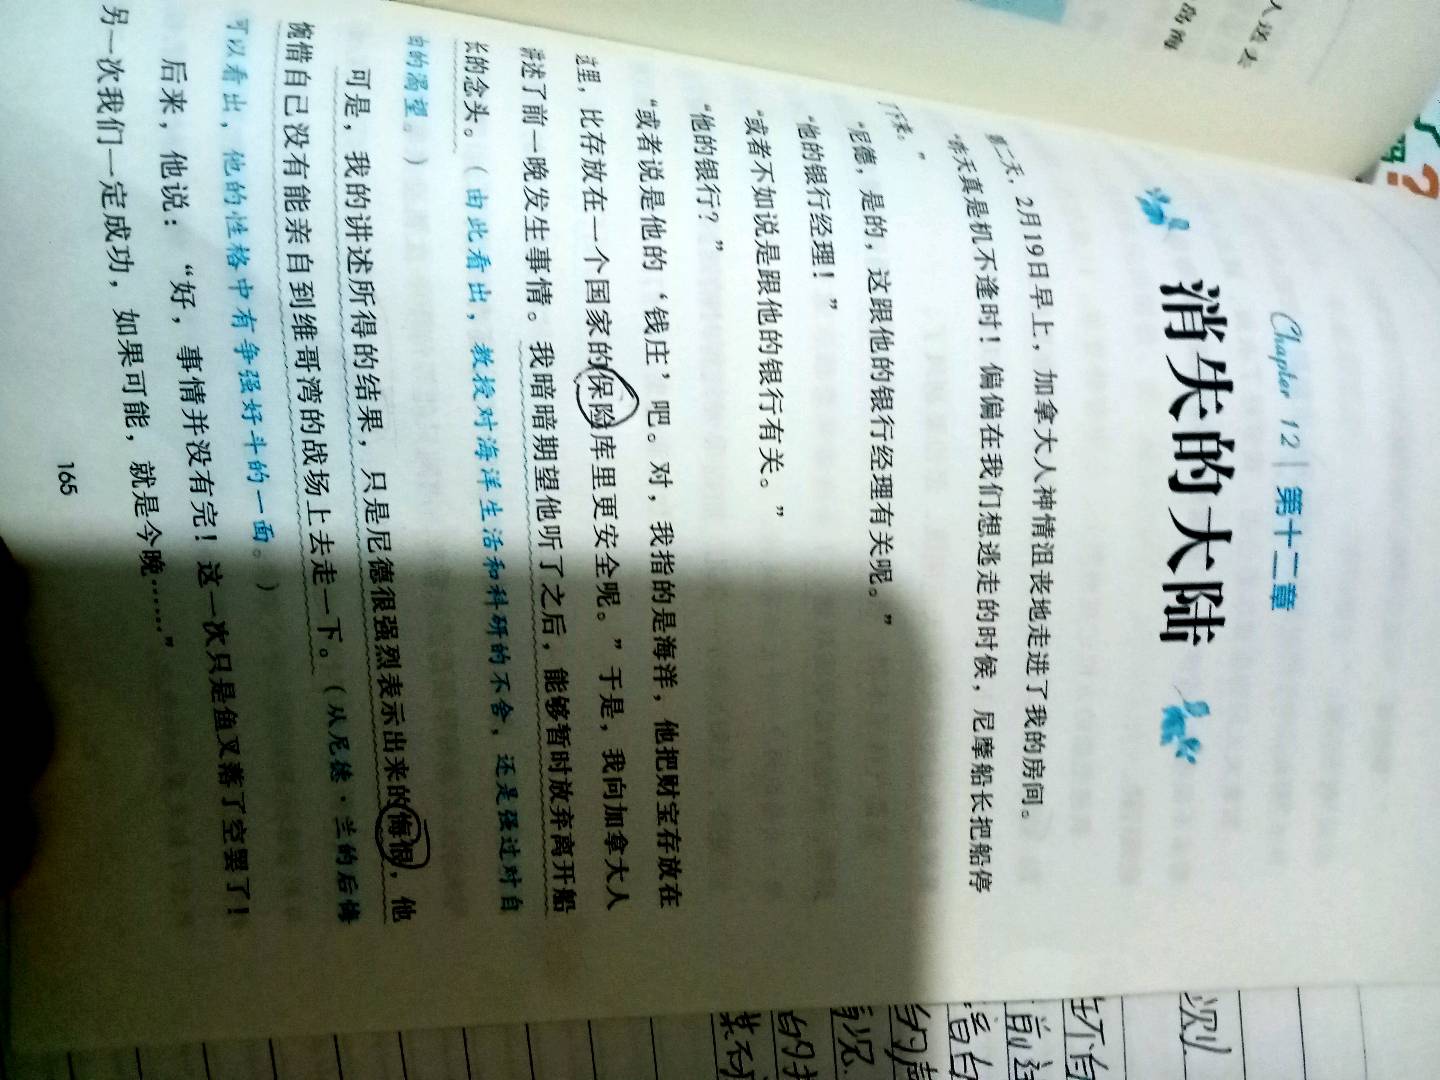 Chapter 12 | 第十二章
消失的大陆
第二天，2月19日早上，加拿大人神情沮丧地走进了我的房间。
“昨天真是机不逢时！偏偏在我们想逃走的时候，尼摩船长把船停
了下来。”
“尼德，是的，这跟他的银行经理有关呢。”
“他的银行经理！”
“或者不如说是跟他的银行有关。”
“他的银行？”
“或者说是他的‘钱庄’吧。对，我指的是海洋，他把财宝存放在
这里，比存放在一个国家的保险库里更安全呢。”于是，我向加拿大人
讲述了前一晚发生事情。我暗暗期望他听了之后，能够暂时放弃离开船
长的念头。（由此看出，教授对海洋生活和科研的不舍，还是强过对自
由的渴望。）
可是，我的讲述所得的结果，只是尼德很强烈表示出来的悔恨，他
惋惜自己没有能亲自到维哥湾的战场上去走一下。（从尼德·兰的后悔
可以看出，他的性格中有争强好斗的一面。）
后来，他说：“好，事情并没有完！这一次只是鱼叉落了空罢了！
另一次我们一定成功，如果可能，就是今晚……”
165
人送上
岛的
?
测
环自
前
白
声
况
的